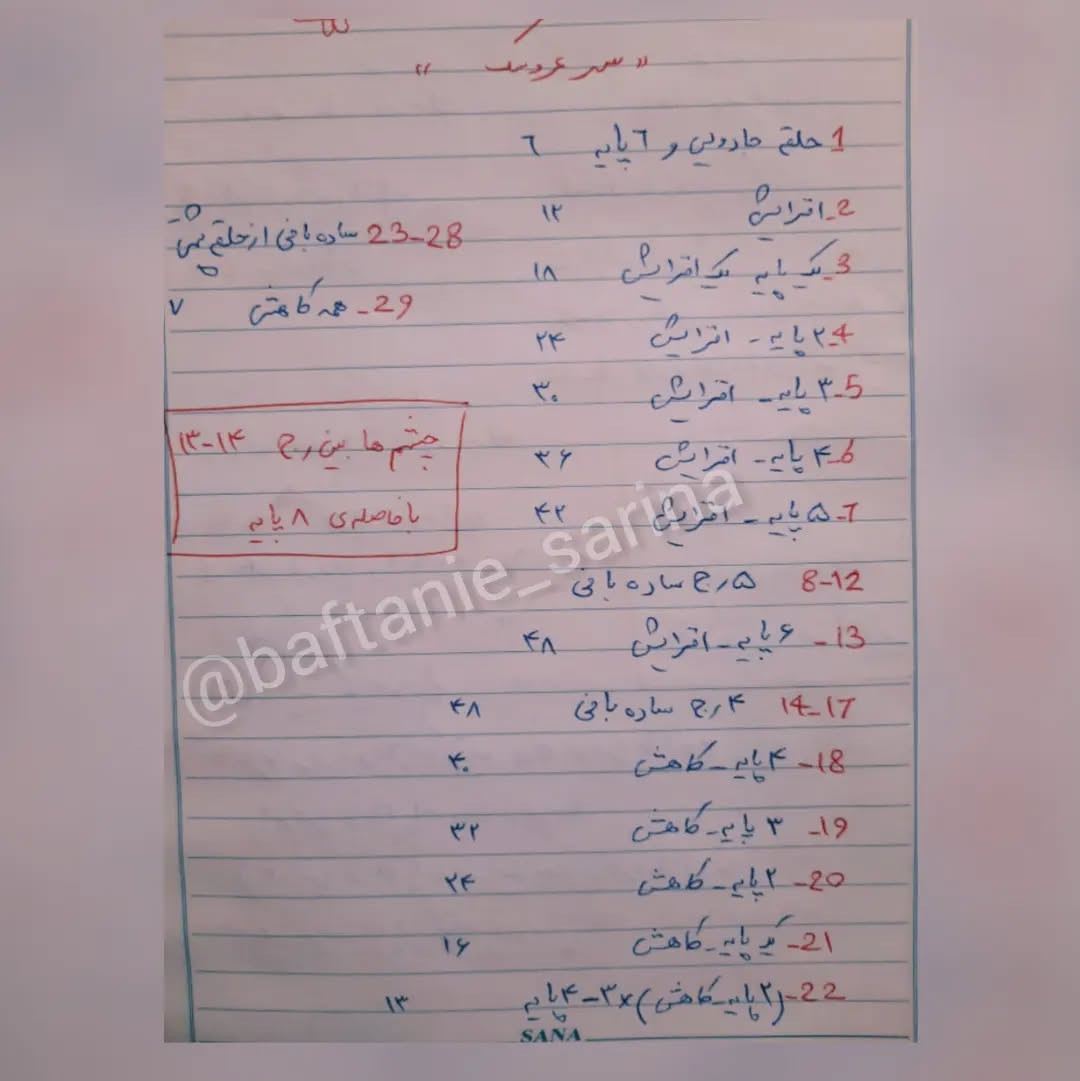 "سر عروسک"
1 حلقه جادویی و ٦ پایه ٦
2_ افزایش ۱۲
3_ یک پایه یک افزایش ۱۸
4_ ۲ پایه - افزایش ۲۴
5_ ۳ پایه _ افزایش ۳۰
6_ ۴ پایه - افزایش ۳۶
7_ ۵ پایه - افزایش ۴۲
8-12 ۵ رج ساده بافی
13_ ۶ پایه _ افزایش ۴۸
14_17 ۴ رج ساده بافی ۴۸
18- ۴ پایه _ کاهش ۴۰
19_ ۳ پایه _ کاهش ۳۲
20- ۲ پایه _ کاهش ۲۴
21- یک پایه _ کاهش ۱۶
22-(۲ پایه _ کاهش)×۳-۴ پایه ۱۳
23-28 ساده بافی از حلقه پس
29_ همه کاهش ۷
چشم ها بین رج ۱۴-۱۳
با فاصله‌ی ۸ پایه
@baftanie_sarina
SANA